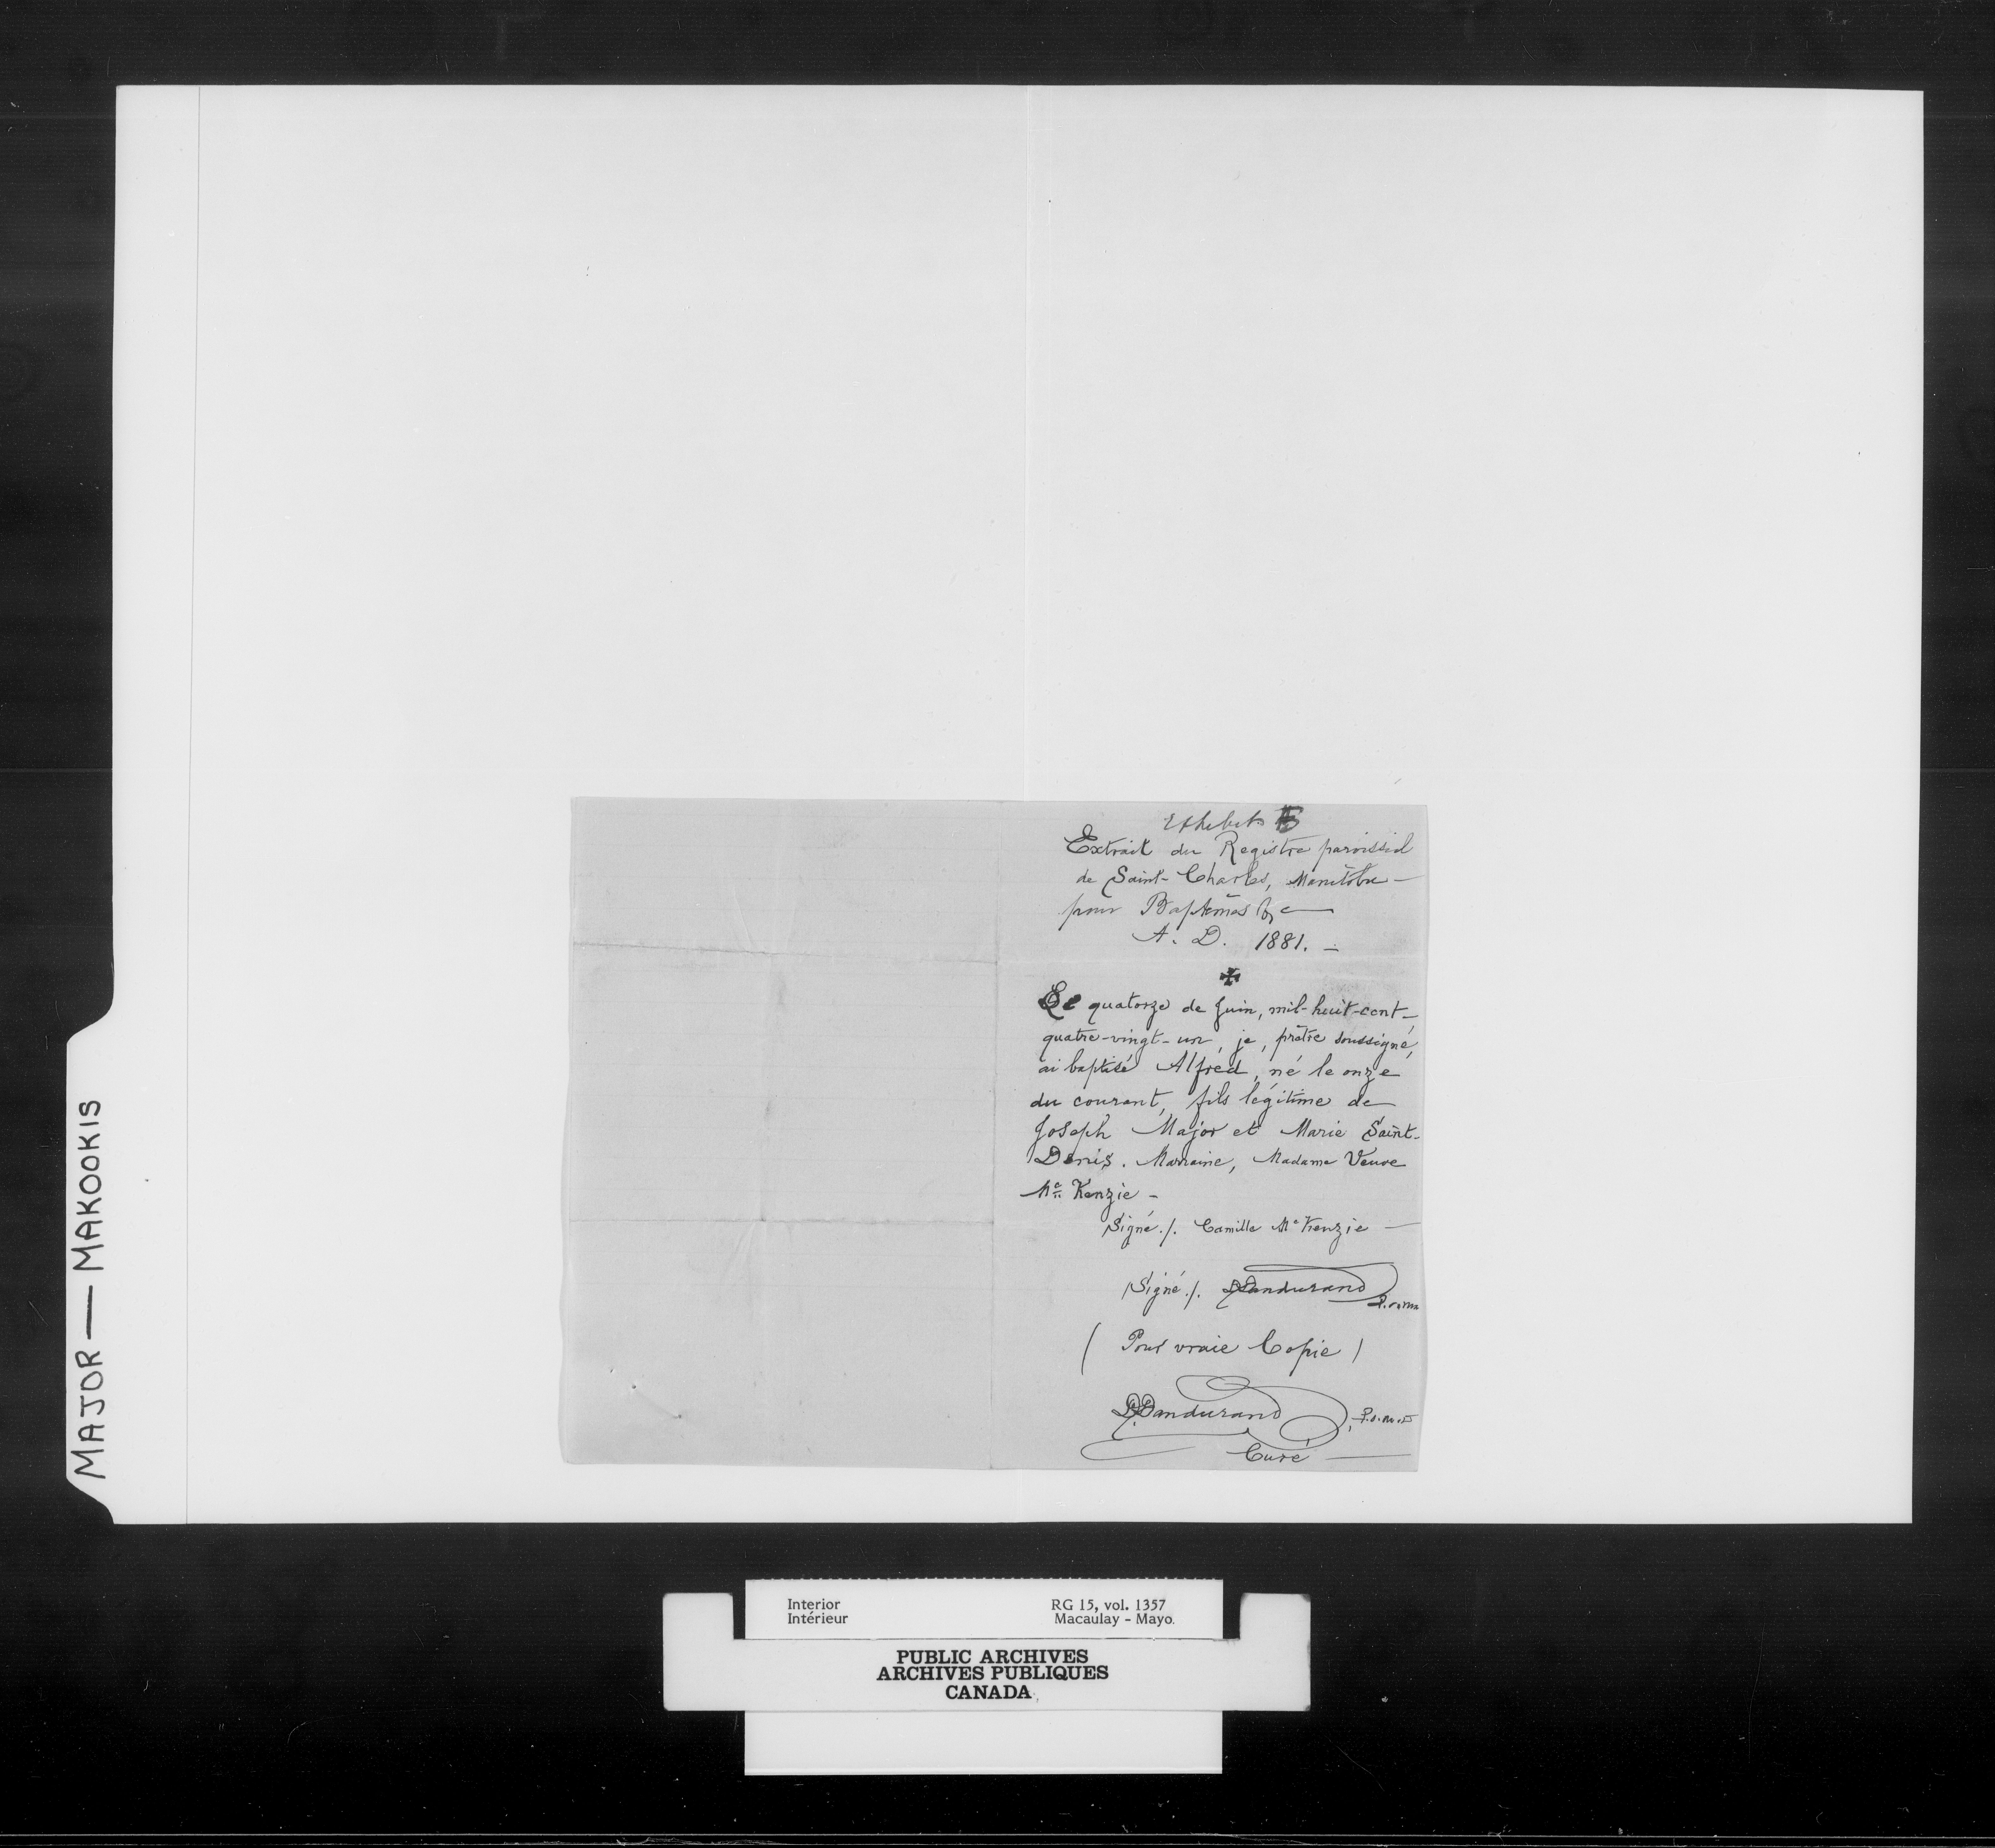 Exhibit B
Extrait du Registre paroissial
de Saint-Charles, Manitoba —
pour Baptêmes &c —
A. D. 1881. —
✠
Le quatorze de Juin, mil-huit-cent-
quatre-vingt-un, je, prêtre soussigné,
ai baptisé Alfred, né le onze
du courant, fils légitime de
Joseph Major et Marie Saint-
Denis. Marraine, Madame Veuve
Mc Kenzie -
Signé./. Camille Mc Kenzie —
Signé./. DDandurand
(Pour vraie Copie)
DDandurand
Curé —
MAJOR — MAKOOKIS
Interior
Intérieur
RG 15, vol. 1357
Macaulay - Mayo.
PUBLIC ARCHIVES
ARCHIVES PUBLIQUES
CANADA